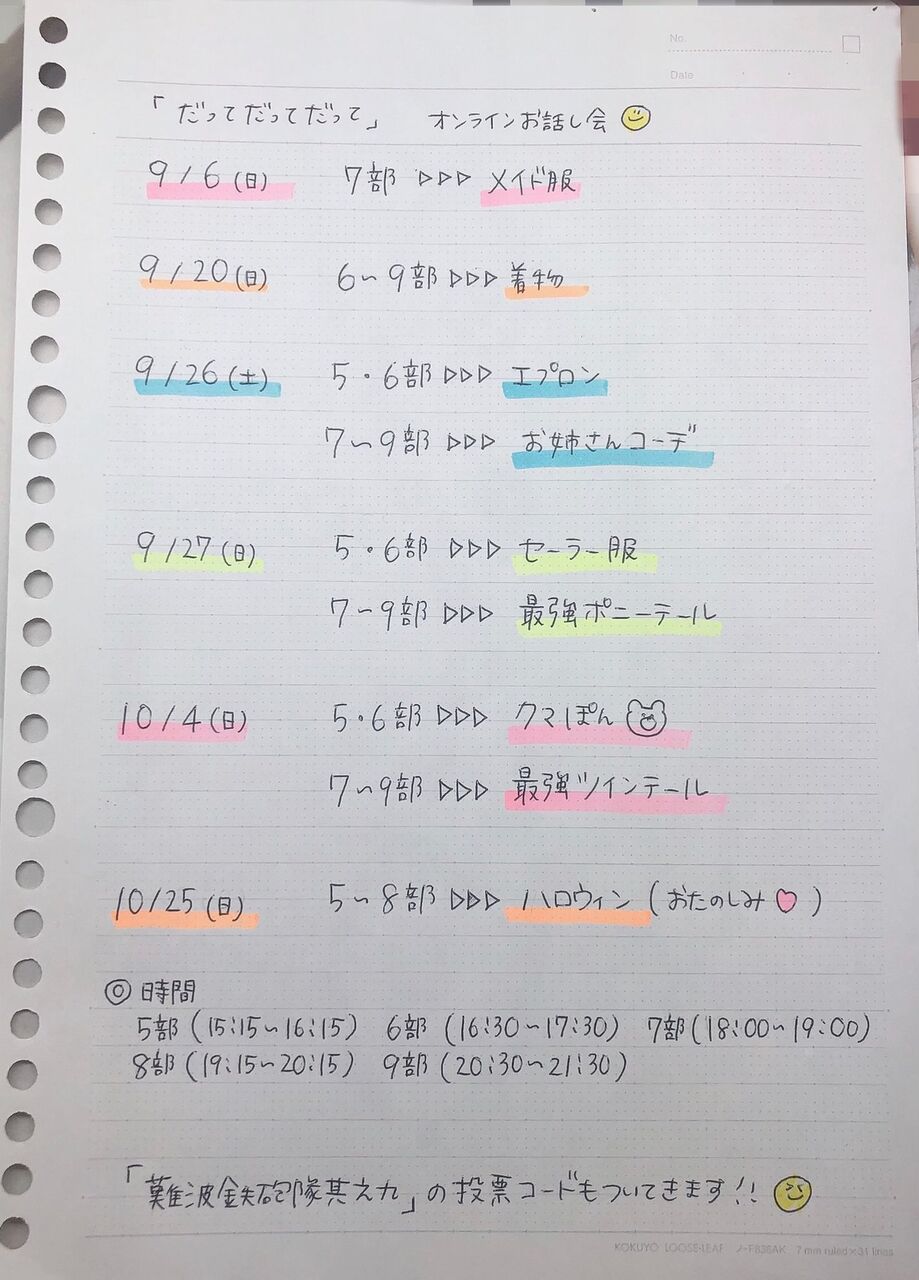 No.
Date
「だってだってだって」 オンラインお話し会
9/6(日) 7部 ▷▷▷ メイド服
9/20(日) 6〜9部 ▷▷▷ 着物
9/26(土) 5・6部 ▷▷▷ エプロン
7〜9部 ▷▷▷ お姉さんコーデ
9/27(日) 5・6部 ▷▷▷ セーラー服
7〜9部 ▷▷▷ 最強ポニーテール
10/4(日) 5・6部 ▷▷▷ クマぽん
7〜9部 ▷▷▷ 最強ツインテール
10/25(日) 5〜8部 ▷▷▷ ハロウィン(おたのしみ♡)
◎時間
5部(15:15〜16:15) 6部(16:30〜17:30) 7部(18:00〜19:00)
8部(19:15〜20:15) 9部(20:30〜21:30)
「難波鉄砲隊其之九」の投票コードもついてきます!!
KOKUYO LOOSE-LEAF ノ-F836AK 7 mm ruled×31 lines